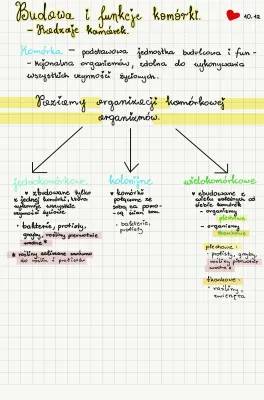 Budowa i funkcje komórki.
10.12
- Rodzaje komórek.
Komórka - podstawowa jednostka budulcowa i fun-
-kcjonalna organizmów, zdolna do wykonywania
wszystkich czynności życiowych.
Poziomy organizacji komórkowej
organizmów.
jednokomórkowe
• zbudowane tylko
z jednej komórki, która
wykonuje wszystkie
czynności życiowe
• bakterie, protisty,
grzyby, rośliny pierwotnie
wodne*
* rośliny zaliczane zarówno
do roślin i protistów
kolonijne
• komórki
połączone ze
sobą za pomo-
-cą
• bakterie,
protisty
wielokomórkowe
• zbudowane z
wielu zależnych od
siebie komórek
- organizmy
plechowe
- organizmy
tkankowe
plechowe:
• protisty, grzyby,
rośliny pierwotnie
wodne*
tkankowe:
• rośliny,
zwierzęta